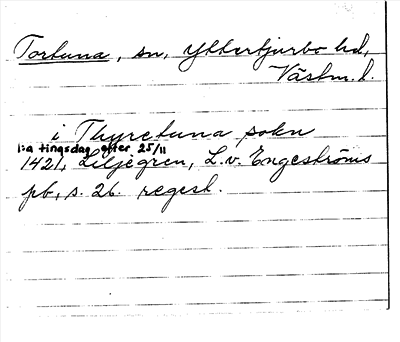 Tortuna, sn, Yttertjurbo hd,
Västm. l.
i Thyretuna sokn
1:a tingsdag efter 25/11
1421, Liljegren, L. v. Engeströms
pb, s. 26. regest.